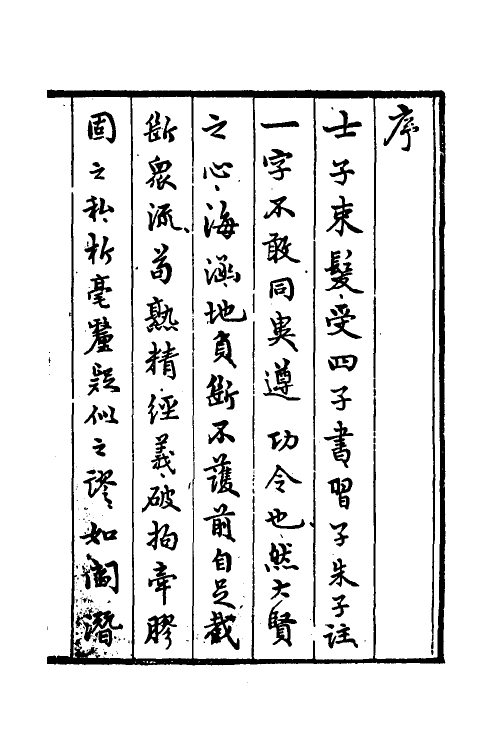 序
士子束髮受四子書習子朱子註
一字不敢同異遵功令也然大賢
之心海涵地負斷不護前自足截
斷眾流苟熟精經義破拘牽膠
固之私析毫釐疑似之謬如閻潛